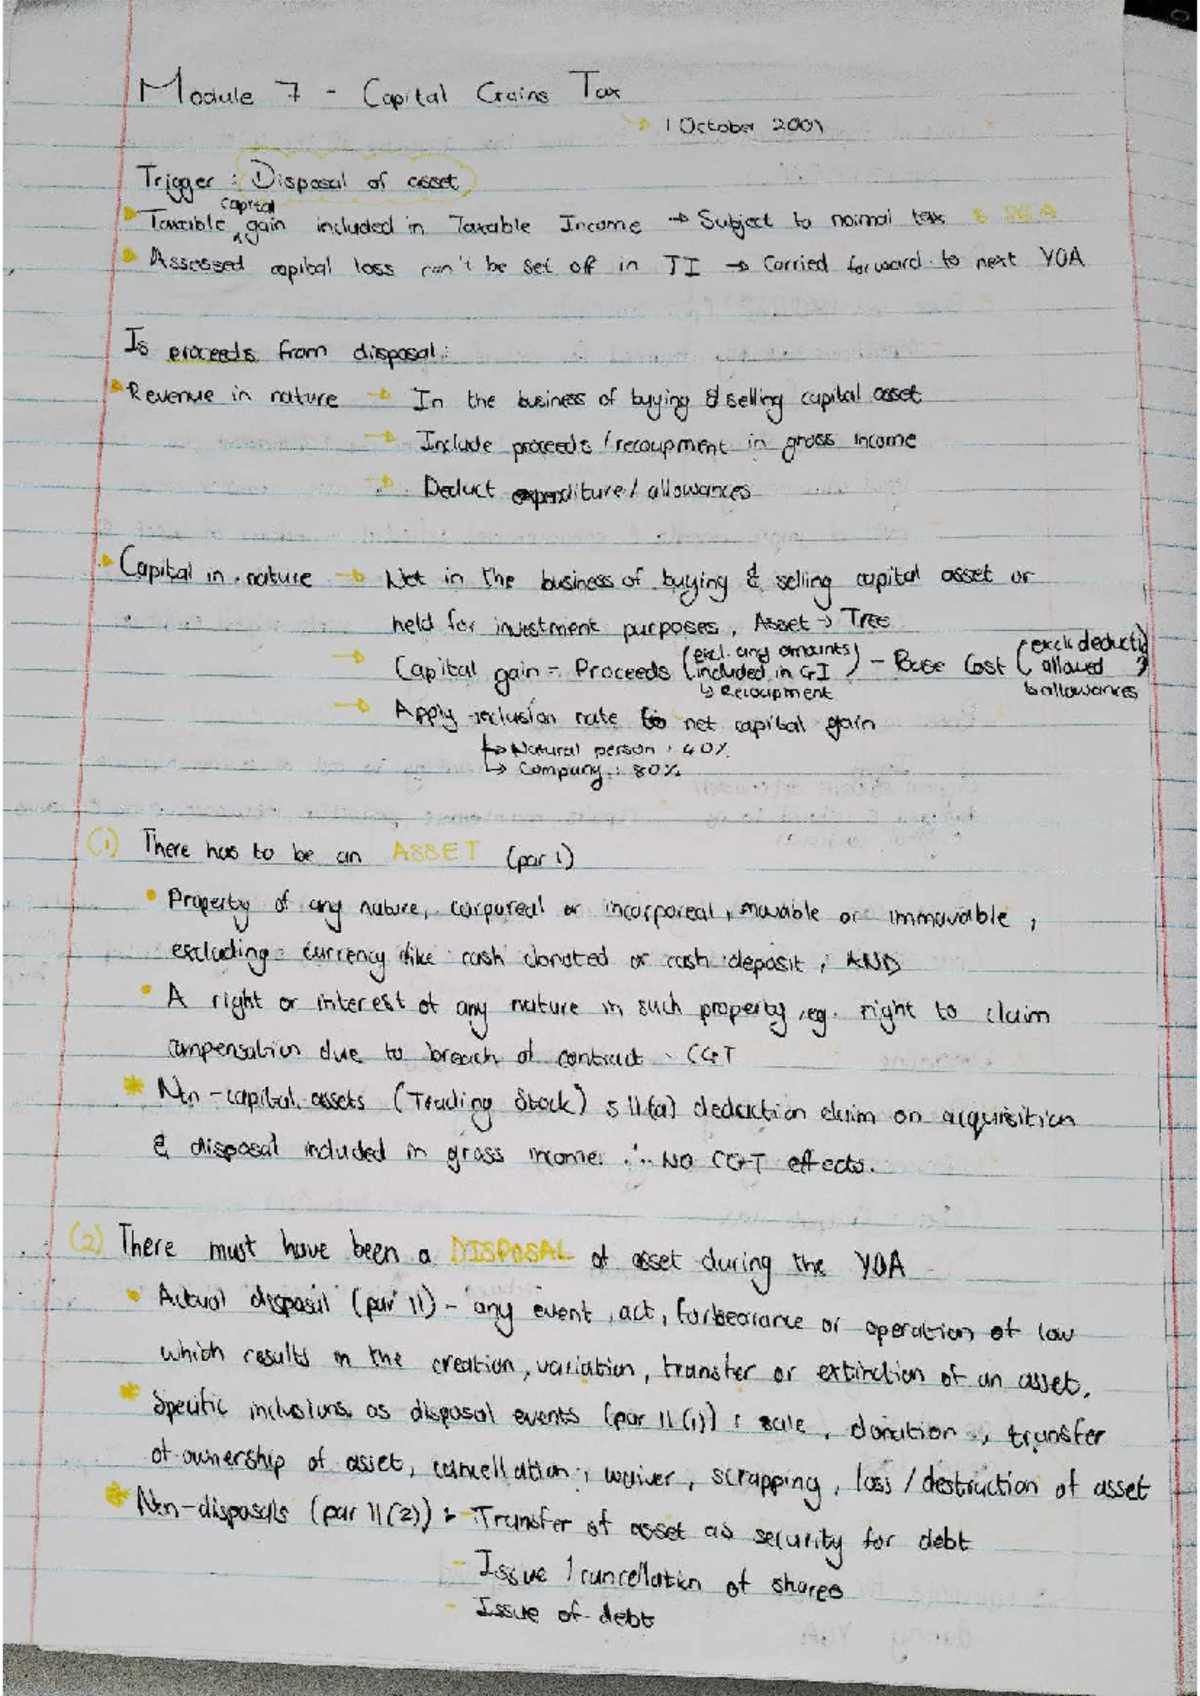 Module 7 - Capital Gains Tax
→ 1 October 2001
Trigger : Disposal of asset
Taxable capital gain included in Taxable Income → Subject to normal tax S 26A
Assessed capital loss can't be set off in TI → Carried forward to next YOA
Is proceeds from disposal:
Revenue in nature → In the business of buying & selling capital asset
→ Include proceeds / recoupment in gross income
→ Deduct expenditure / allowances
Capital in nature → Not in the business of buying & selling capital asset or
held for investment purposes, Asset → Tree
→ Capital gain = Proceeds (excl. any amounts included in GI) - Base Cost (excl. deductions allowed)
↳ Recoupment ↳ allowances
→ Apply inclusion rate to net capital gain
↳ Natural person : 40%
↳ Company : 80%
(1) There has to be an ASSET (par 1)
• Property of any nature, corporeal or incorporeal, movable or immovable,
excluding currency like cash donated or cash deposit, AND
• A right or interest of any nature in such property, eg. right to claim
compensation due to breach of contract - CGT
* Non-capital assets (Trading Stock) s 11(a) deduction claim on acquisition
& disposal included in gross income. ∴ NO CGT effects.
(2) There must have been a DISPOSAL of asset during the YOA
• Actual disposal (par 11) - any event, act, forbearance or operation of law
which results in the creation, variation, transfer or extinction of an asset.
* Specific inclusions as disposal events (par 11(1)) : sale, donation, transfer
of ownership of asset, cancellation, waiver, scrapping, loss / destruction of asset
* Non-disposals (par 11(2)) : - Transfer of asset as security for debt
- Issue / cancellation of shares
- Issue of debt